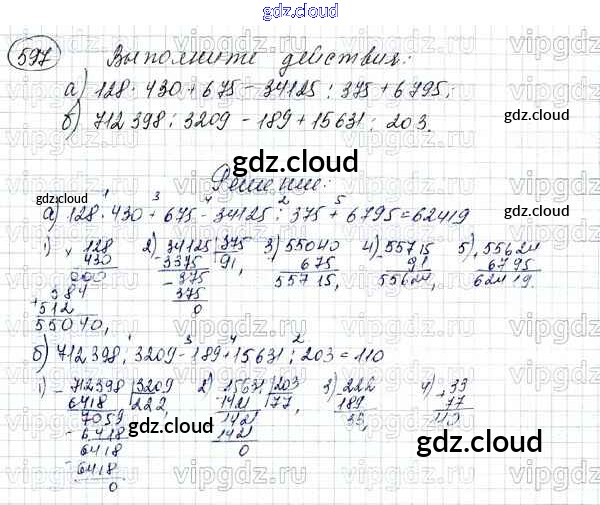 gdz.cloud
597 Выполните действия:
а) 128 · 430 + 675 - 34125 : 375 + 6795;
б) 712398 : 3209 - 189 + 15631 : 203.
gdz.cloud
Решение:
1 3 4 2 5
а) 128 · 430 + 675 - 34125 : 375 + 6795 = 62419
1) × 128 2) 34125 | 375 3) 55040 4) 55715 5) + 55624
430 - 3375 91, 675 - 91 6795
000 - 375 55715, 55624, 62419.
384 375
+ 512 0
55040,
1 3 4 2
б) 712398 : 3209 - 189 + 15631 : 203 = 110
1) - 712398 | 3209 2) - 15631 | 203 3) - 222 4) + 33
6418 222, 1421 77, 189 77
7059 1421 33, 110
- 6418 1421
6418 0
- 6418
0
gdz.cloud